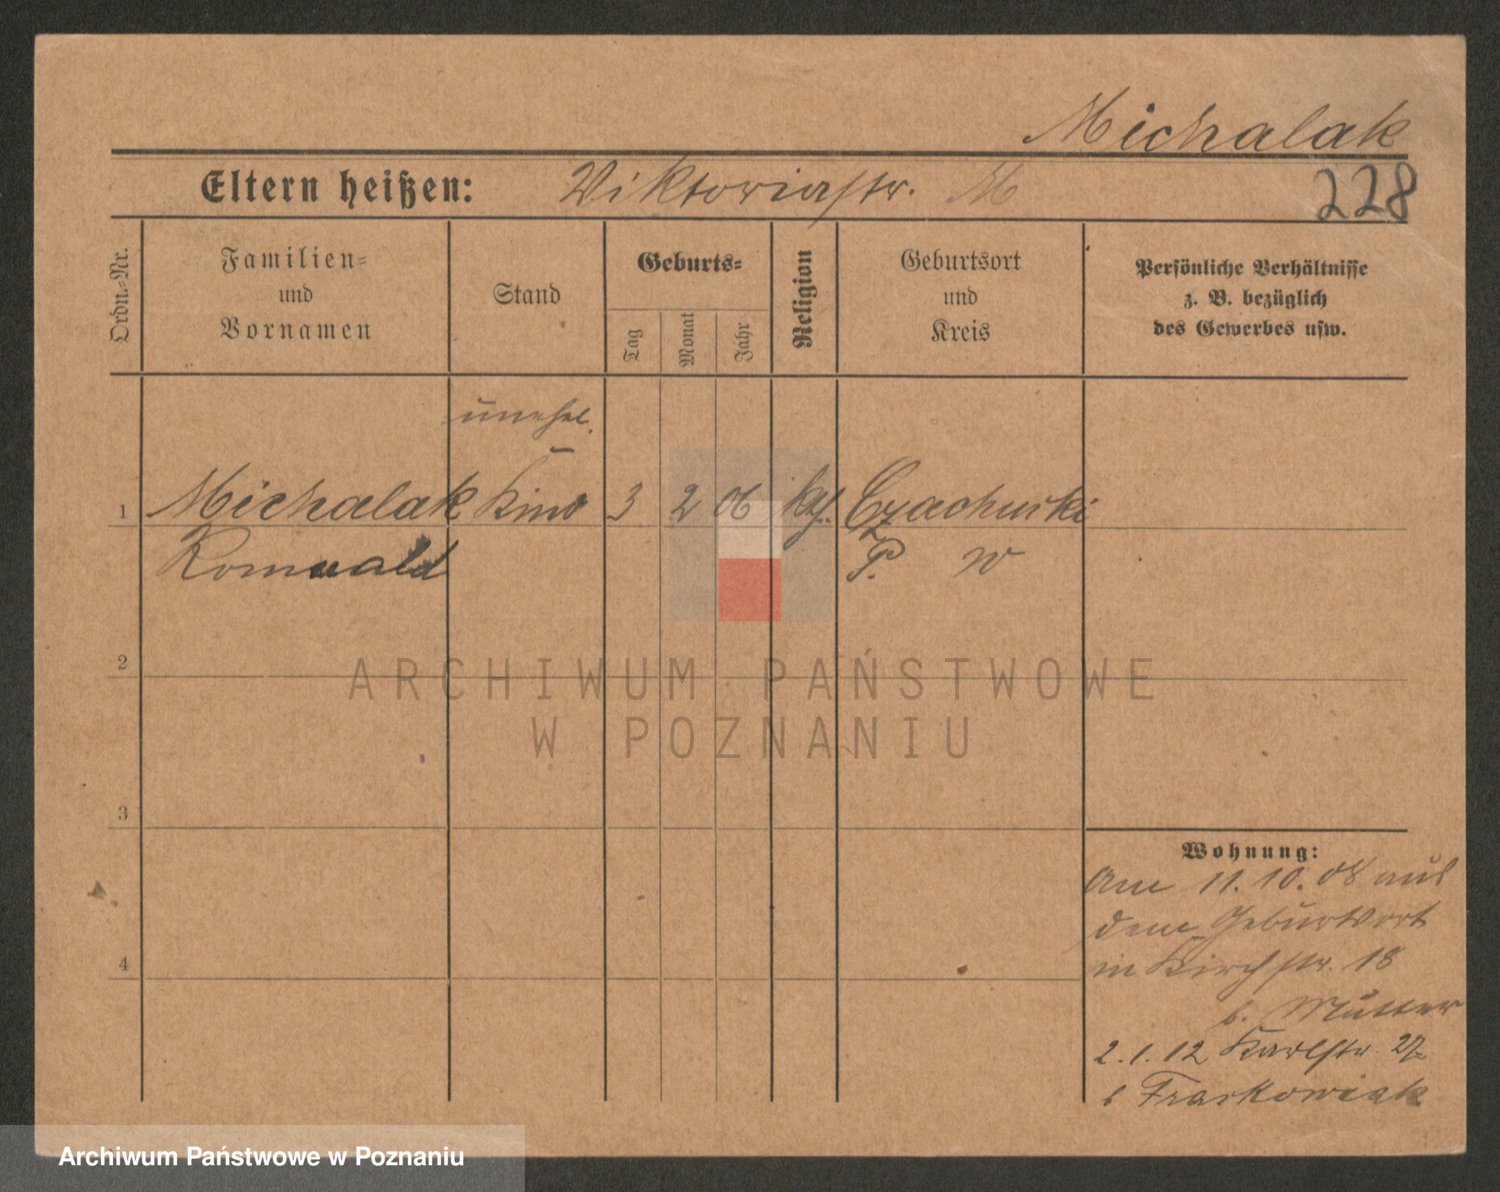 Michalak
Eltern heißen: Viktoriastr. M
228
Ordn.-Nr.
Familien-
und
Vornamen
Stand
Geburts-
Tag
Monat
Jahr
Religion
Geburtsort
und
Kreis
Persönliche Verhältnisse
z. B. bezüglich
des Gewerbes usw.
unehel.
1 Michalak Kind 3 2 06 kth.
Romuald P. W
2
3
4
ARCHIWUM PAŃSTWOWE
W POZNANIU
Wohnung:
Am 11.10.08 aus
dem Geburtsort
in Kirchstr. 18
b. Mutter
2.1.12 Karlstr.
b Fraskowiak
Archiwum Państwowe w Poznaniu